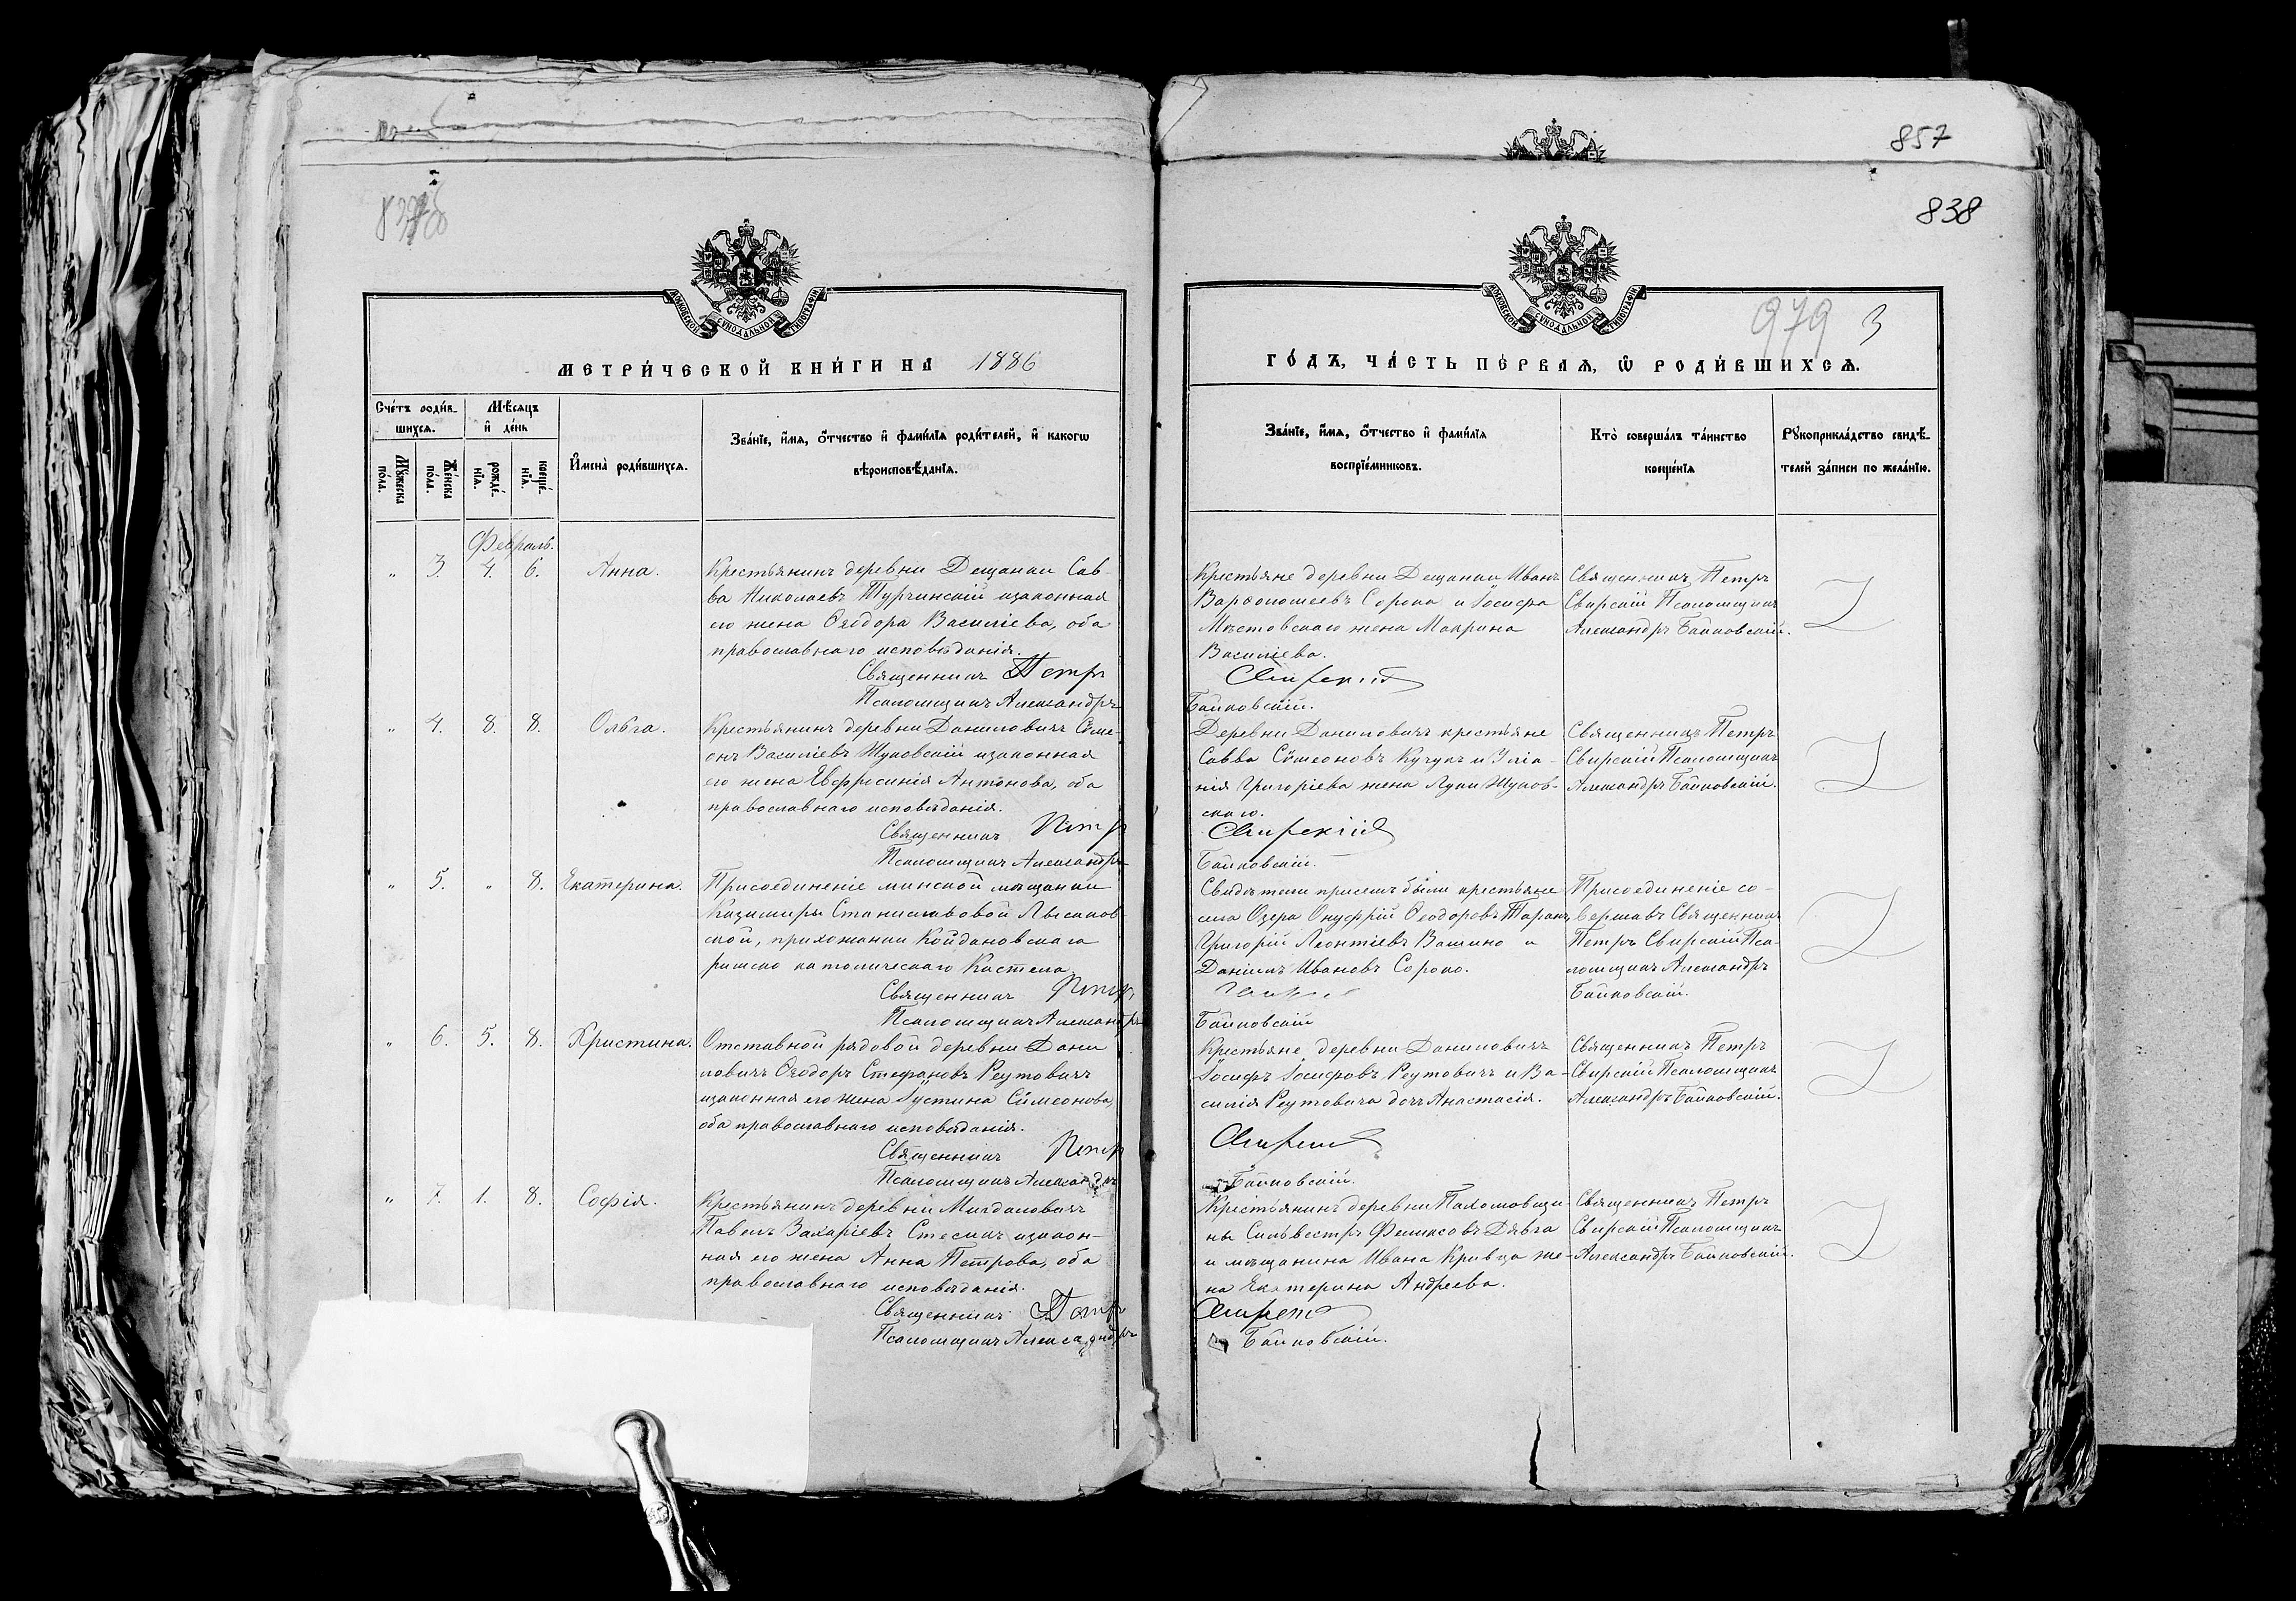 857
838
979 3
МОСКОВСКОЙ СѴНОДАЛЬНОЙ ТИПОГРАФІИ
МОСКОВСКОЙ СѴНОДАЛЬНОЙ ТИПОГРАФІИ
МЕТРИ́ЧЕСКОЙ КНИ́ГИ НА 1886
ГО́ДЪ, ЧА́СТЬ ПЕ́РВАѦ, Ѽ РОДИ́ВШИХСѦ.
Сче́тъ роди́в-
шихсѧ.
Мꙋ́жеска по́ла.
Же́нска по́ла.
Мѣ́сѧцъ
и҆ де́нь
рожде́-
нїѧ.
креще́-
нїѧ.
И҆мена̀ роди́вшихсѧ.
Зва́нїе, и҆́мѧ, ѻ҆́тчество и҆ фами́лїѧ роди́телей, и҆ какогѡ
вѣроисповѣ́данїѧ.
Зва́нїе, и҆́мѧ, ѻ҆́тчество и҆ фами́лїѧ
воспрїе́мниковъ.
Кто̀ соверша́лъ та́инство
креще́нїѧ
Рꙋкоприкла́дство свидѣ́-
телей за́писи по жела́нїю.
Февраль.
" 3. 4. 6. Анна.
Крестьянинъ деревни Дещанки Сав-
ва Николаевъ Турчинскій и законная
его жена Ѳеодора Василіева, оба
православнаго исповѣданія.
Священникъ Петръ
Псаломщикъ Александръ
Крестьяне деревни Дещанки Иванъ
Варѳоломеевъ Сорока и Іосифа
Мостовскаго жена Макрина
Василіева.
Свирскій
Байковскій.
Священникъ Петръ
Свирскій Псаломщикъ
Александръ Байковскій.
" 4. 8. 8. Ольга.
Крестьянинъ деревни Даниловичъ Сѵме-
онъ Василіевъ Жуковскій и законная
его жена Евфросинія Антонова, оба
православнаго исповѣданія.
Священникъ Петръ
Псаломщикъ Александръ
Деревни Даниловичъ крестьяне
Савва Сѵмеоновъ Кучукъ и Уліа-
нія Григоріева жена Луки Жуков-
скаго.
Свирскій
Байковскій.
Священникъ Петръ
Свирскій Псаломщикъ
Александръ Байковскій.
" 5. " 8. Екатерина.
Присоединеніе минской мѣщанки
Казимиры Станиславовой Лысаков-
ской, прихожанки Койдановскаго
римско католическаго Костела
Священникъ Петръ
Псаломщикъ Александръ
Свидѣтели при семъ были крестьяне
села Озера Онуфрій Ѳеодоровъ Таранъ,
Григорій Леонтіевъ Вашино и
Даніилъ Ивановъ Сороко.
Байковскій
Присоединеніе со-
вершавъ Священникъ
Петръ Свирскій Пса-
ломщикъ Александръ
Байковскій.
" 6. 5. 8. Христина.
Отставной рядовой деревни Дани
ловичъ Ѳеодоръ Стефановъ Реутовичъ
и законная его жена Іустина Сѵмеонова,
оба православнаго исповѣданія.
Священникъ Петръ
Псаломщикъ Александръ
Крестьяне деревни Даниловичъ
Іосифъ Іосифовъ Реутовичъ и Ва-
силія Реутовича дочь Анастасія.
Свирскій
Байковскій.
Священникъ Петръ
Свирскій Псаломщикъ
Александръ Байковскій.
" 7. 1. 8. Софія.
Крестьянинъ деревни Магдаловичъ
Павелъ Захаріевъ Стесикъ и закон-
ная его жена Анна Петрова, оба
православнаго исповѣданія.
Священникъ Петръ
Псаломщикъ Александръ
Крестьянинъ деревни Пахомовщи-
ны Сильвестръ Феликсовъ Дявга
и мѣщанина Ивана Кривца же-
на Екатерина Андреева.
Свирскій
Байковскій.
Священникъ Петръ
Свирскій Псаломщикъ
Александръ Байковскій.